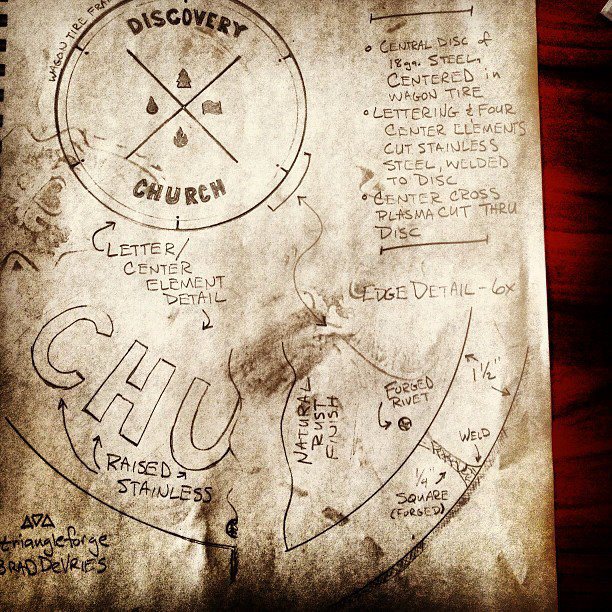 WAGON TIRE
DISCOVERY
CHURCH
° CENTRAL DISC of
18ga. STEEL,
CENTERED in
WAGON TIRE
° LETTERING & FOUR
CENTER ELEMENTS
CUT STAINLESS
STEEL, WELDED
TO DISC
° CENTER CROSS
PLASMA CUT THRU
DISC
LETTER/
CENTER
ELEMENT
DETAIL
EDGE DETAIL - 6x
CHU
RAISED
STAINLESS
NATURAL
RUST
FINISH
FORGED
RIVET
1 1/2"
WELD
1/4"
SQUARE
(FORGED)
triangleforge
BRAD DeVRIES